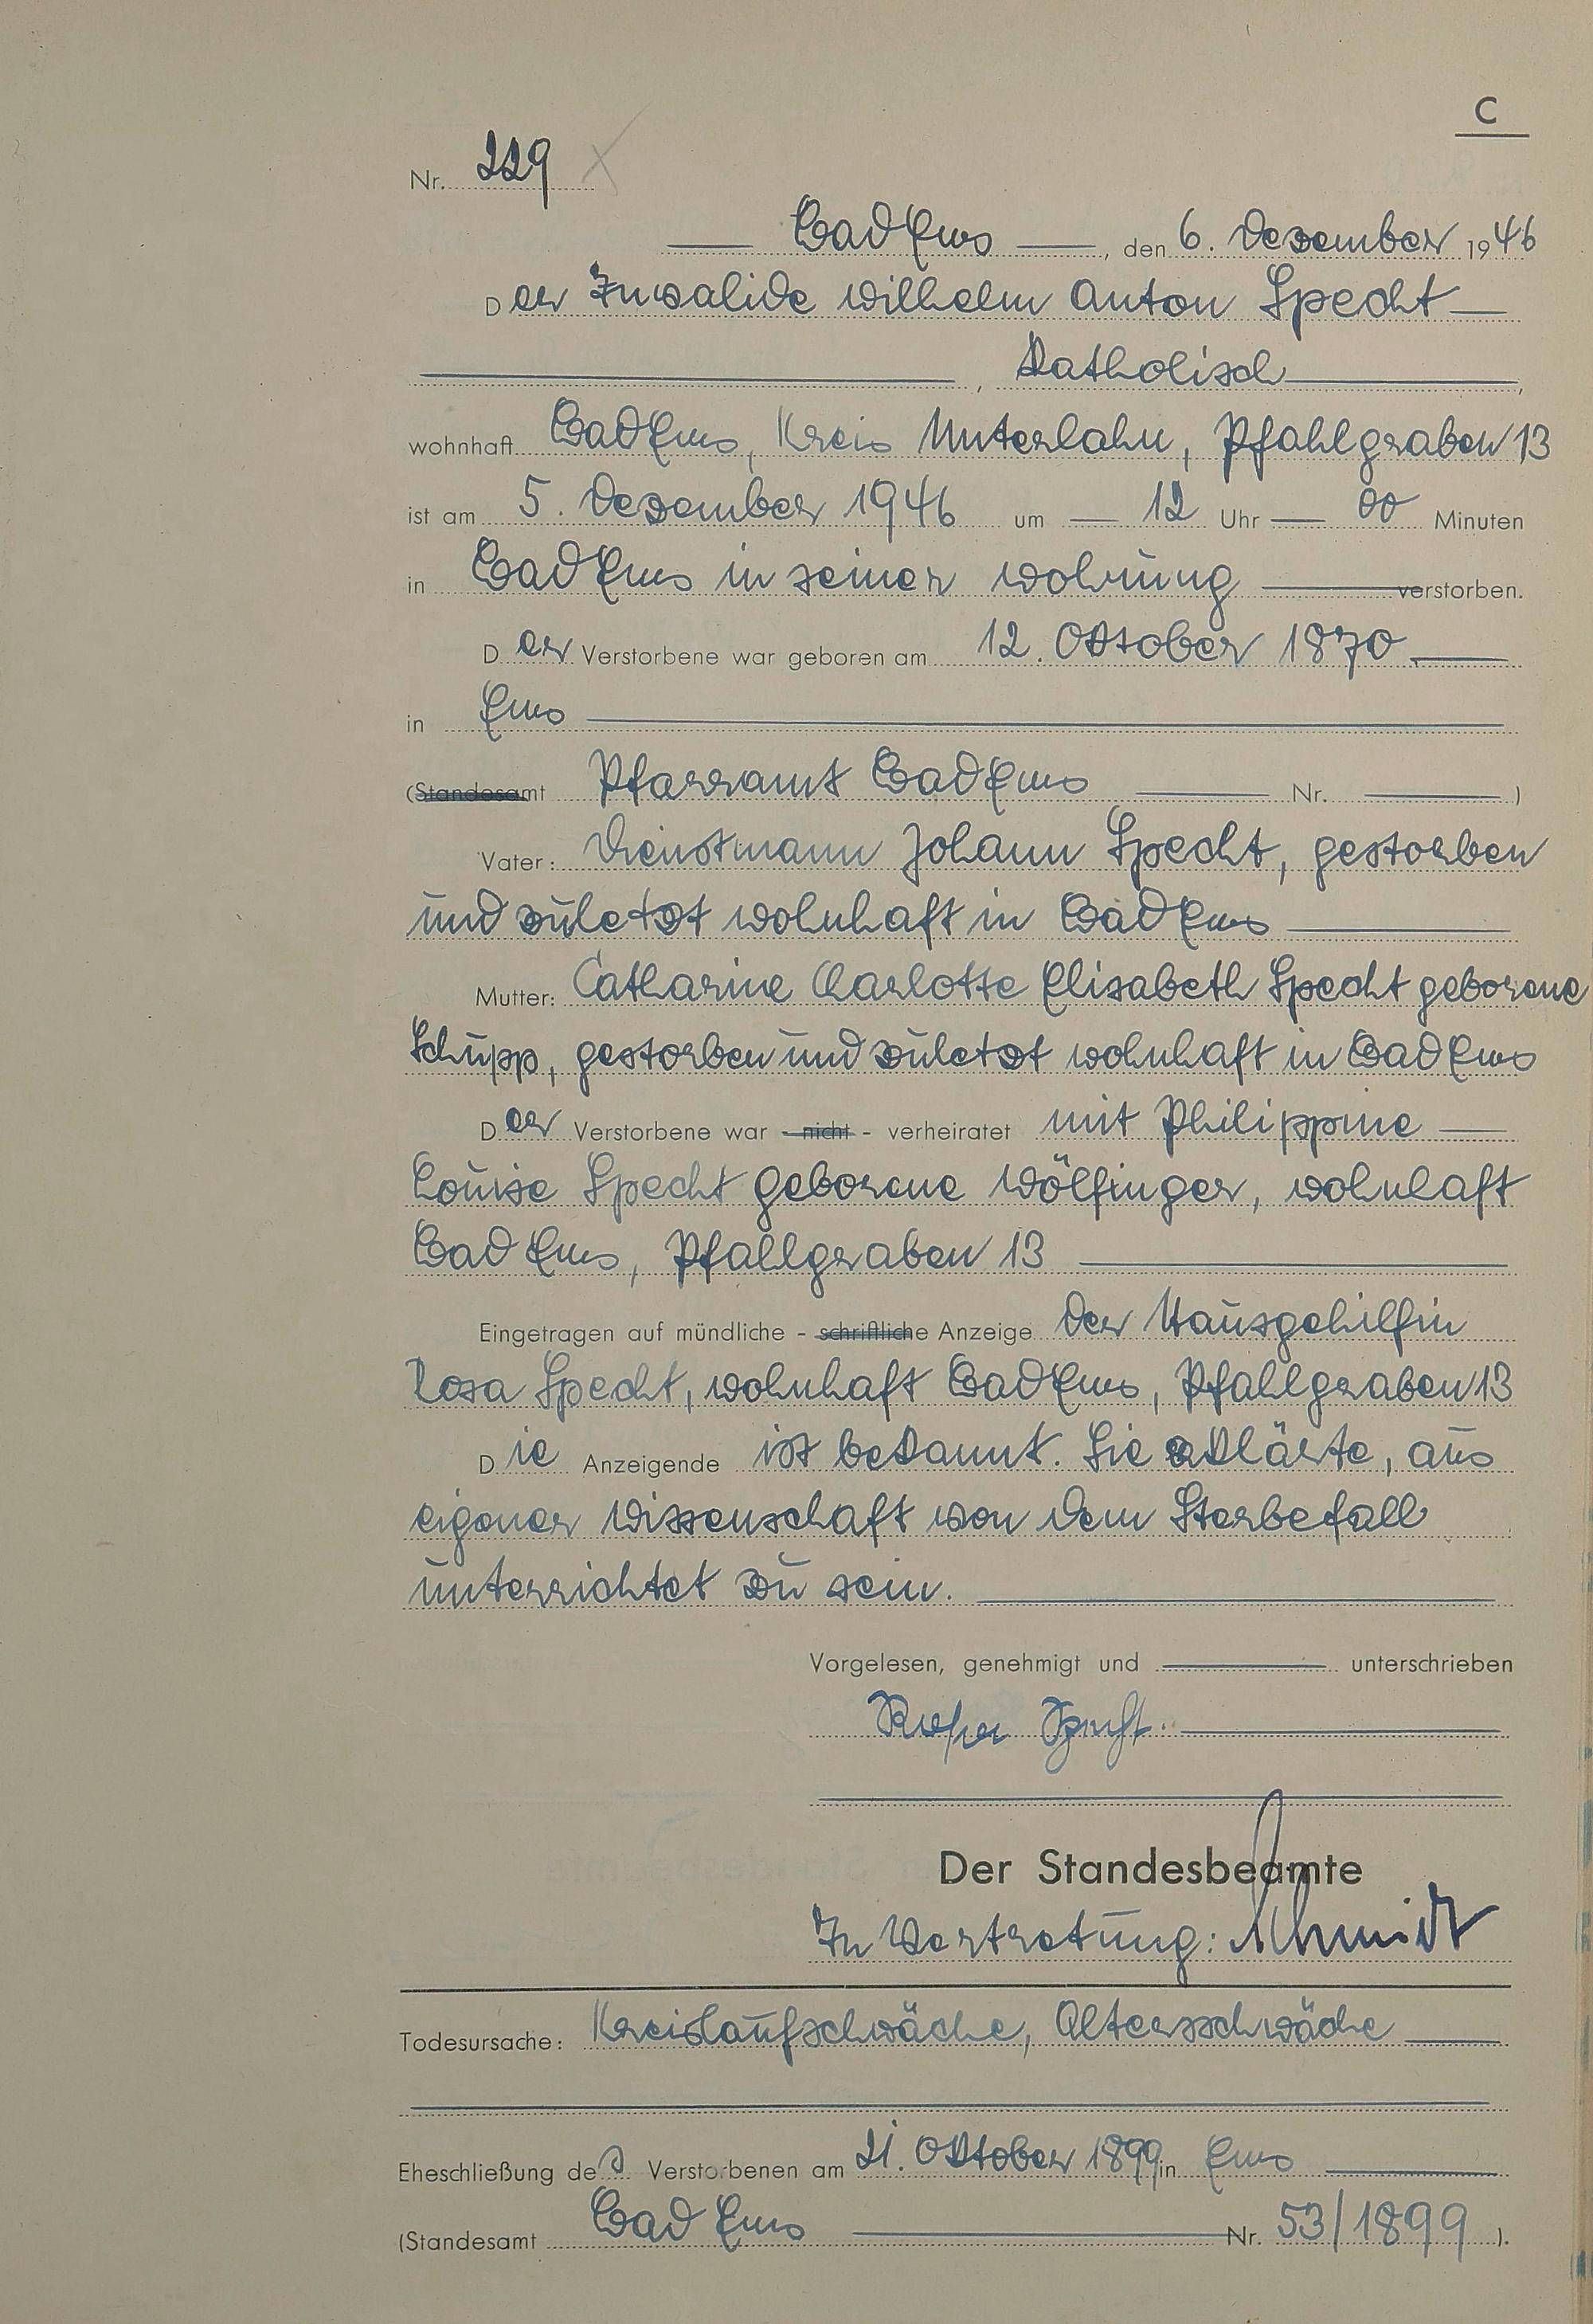 C
Nr. 229
Bad Ems, den 6. Dezember 1946
Der Invalide Wilhelm Anton Specht
, Katholisch,
wohnhaft Bad Ems, Kreis Unterlahn, Pfahlgraben 13
ist am 5. Dezember 1946 um 12 Uhr 00 Minuten
in Bad Ems in seiner Wohnung verstorben.
Der Verstorbene war geboren am 12. Oktober 1870
in Ems
(Standesamt Pfarramt Bad Ems Nr. )
Vater: Dienstmann Johann Specht, gestorben
und zuletzt wohnhaft in Bad Ems
Mutter: Catharine Charlotte Elisabeth Specht geborene
Schupp, gestorben und zuletzt wohnhaft in Bad Ems
Der Verstorbene war - nicht - verheiratet mit Philippine
Louise Specht geborene Wölfinger, wohnhaft
Bad Ems, Pfahlgraben 13
Eingetragen auf mündliche - schriftliche Anzeige der Hausgehilfin
Rosa Specht, wohnhaft Bad Ems, Pfahlgraben 13
Die Anzeigende ist bekannt. Sie erklärte, aus
eigener Wissenschaft von dem Sterbefall
unterrichtet zu sein.
Vorgelesen, genehmigt und unterschrieben
Rosa Specht.
Der Standesbeamte
In Vertretung: Schmidt
Todesursache: Kreislaufschwäche, Altersschwäche
Eheschließung des Verstorbenen am 21. Oktober 1899 in Ems
(Standesamt Bad Ems Nr. 53/1899 ).